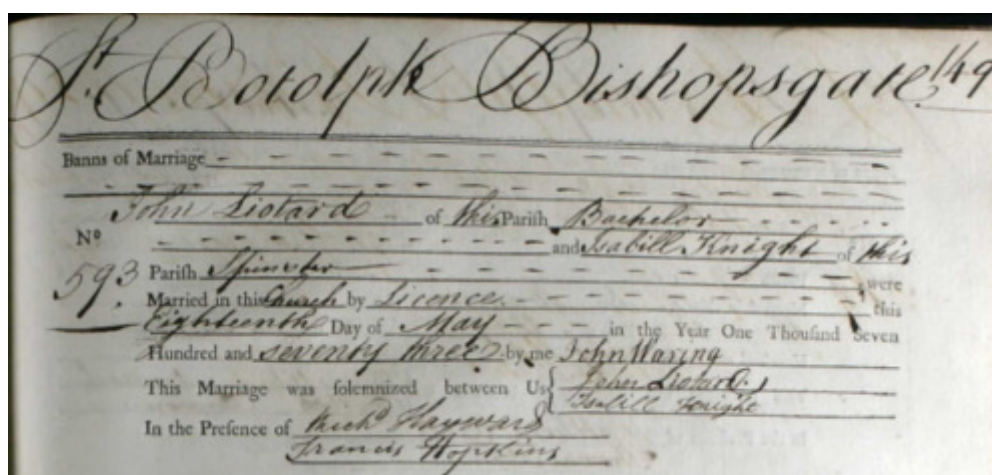 St. Botolph Bishopsgate. 149
Banns of Marriage - - - - - - - - - -
John Liotard - of this Pariſh Bachelor - - - -
No - - - - - - - - and Isabill Knight of this
593. Pariſh Spinster - - - - - - - - were
Married in this Church by Licence - - - - - - this
Eighteenth Day of May - - - in the Year One Thouſand Seven
Hundred and seventy three by me John Waring
This Marriage was ſolemnized between Us { John Liotard
Isabill Knight
In the Preſence of Richd Hayward
Francis Hopkins